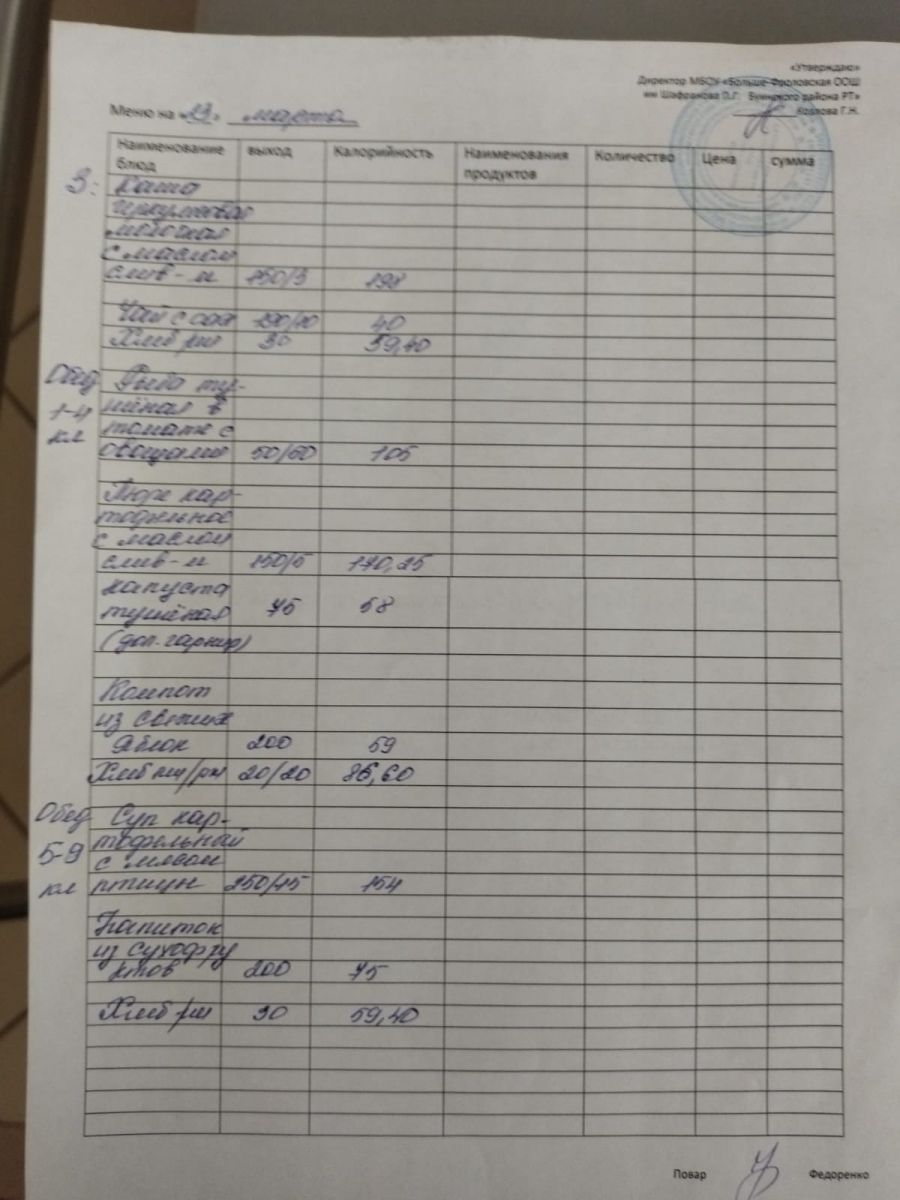 «Утверждаю»
Директор МБОУ «Больше-Фроловская ООШ
им Шафранова П.Г. Буинского района РТ»
Козлова Г.Н.
Меню на «19» марта
Наименование блюд выход Калорийность Наименования продуктов Количество Цена сумма
З: Каша
геркулесовая
молочная
с маслом
слив-м 150/3 198
Чай с сах 190/10 40
Хлеб рж 30 59,40
Обед Рыба ту-
1-4 шёная в
кл томате с
овощами 50/50 105
Пюре кар-
тофельное
с маслом
слив-м 150/5 170,25
капуста
тушёная 75 58
(доп. гарнир)
Компот
из свежих
яблок 200 59
Хлеб пш/рж 20/20 86,60
Обед Суп кар-
5-9 тофельный
с мясом
кл птицы 250/15 154
Напиток
из сухофру
ктов 200 75
Хлеб рж 30 59,40
Повар Федоренко